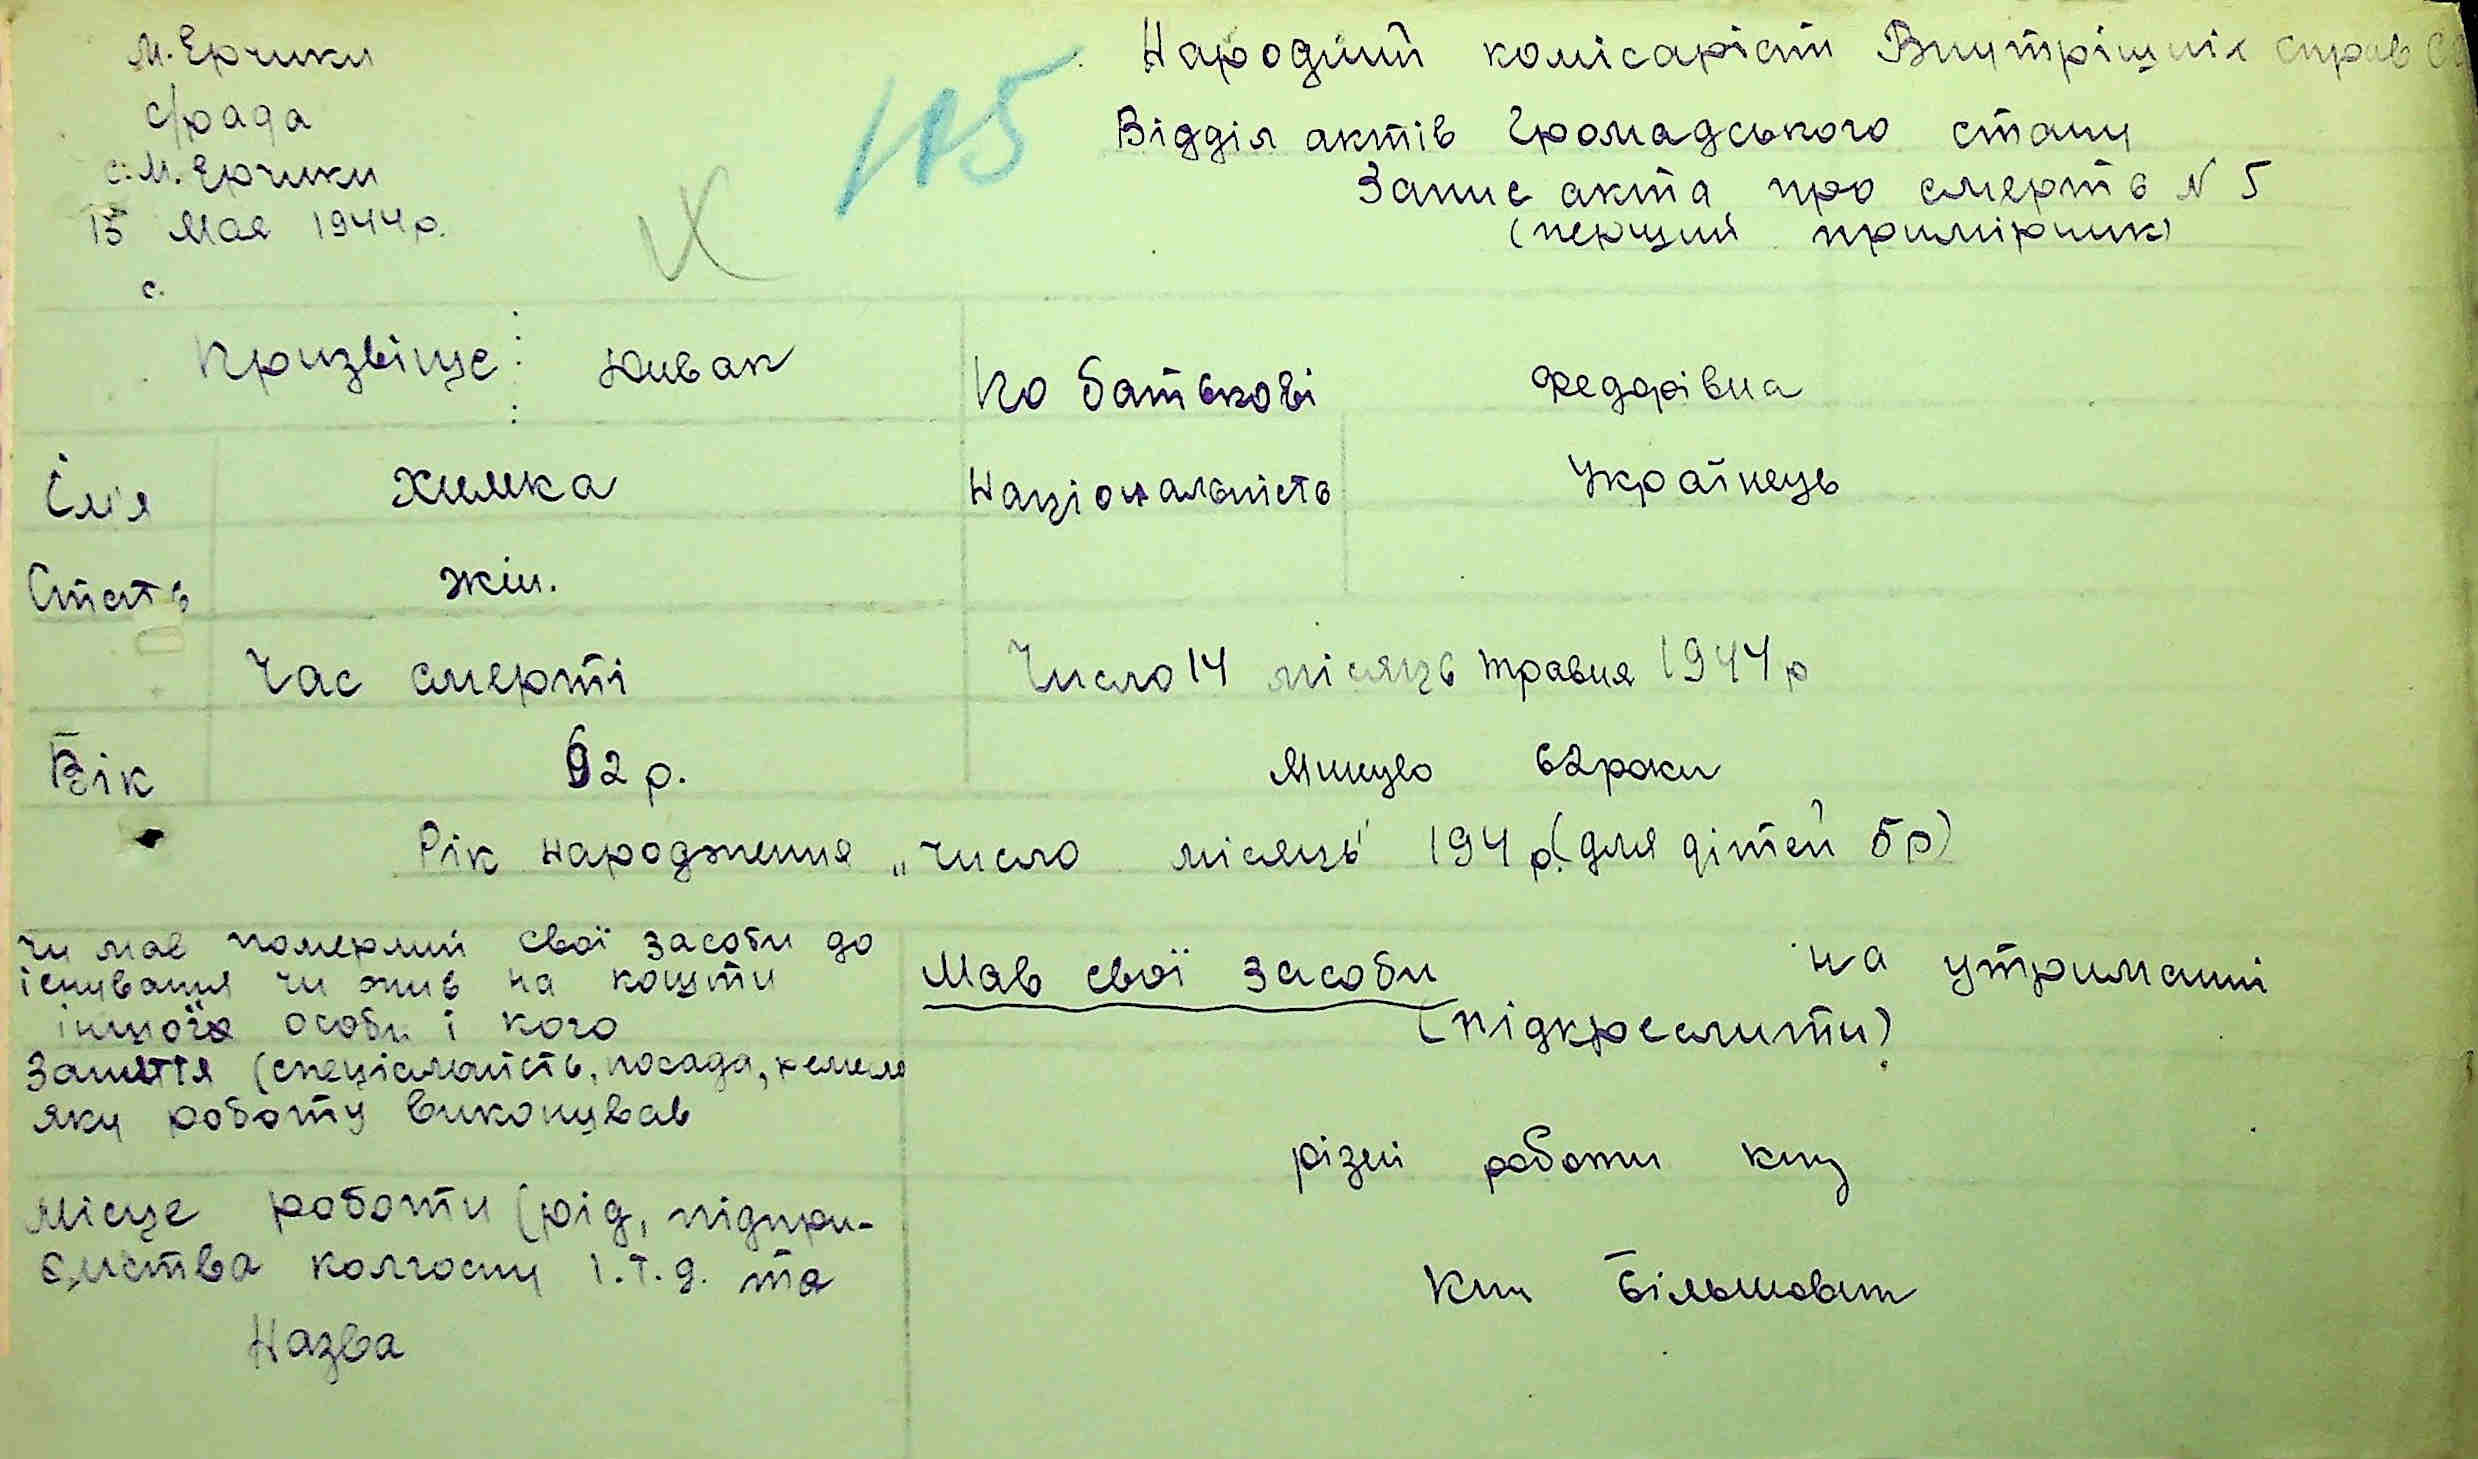 М. Ерчики
с/рада
с. М. Ерчики
15 Мая 1944 р.
с.
115
Народний комісаріат Внутрішніх справ
Відділ актів Громадського стану
Запис акта про смерть N 5
(перший примірник)
Призвіще: Юнвак По батькові Федорівна
Ім'я Химка Національність Українець
Стать жін.
Час смерті Число 14 місяць травня 1944 р
Вік 62 р. Минуло 62 роки
Рік народження „число місяць 194 р. (для дітей 5 р)
Чи мав померлий свої засоби до
існування чи жив на кошти
іншої особи і кого
Мав свої засоби на утриманні
(підкреслити)
Заняття (спеціальність, посада, ремесло
яку роботу виконував
різні роботи кгу
Місце роботи (рід, підпри-
ємства колгоспу і.т.д. та
Назва
Кгн Більшовик